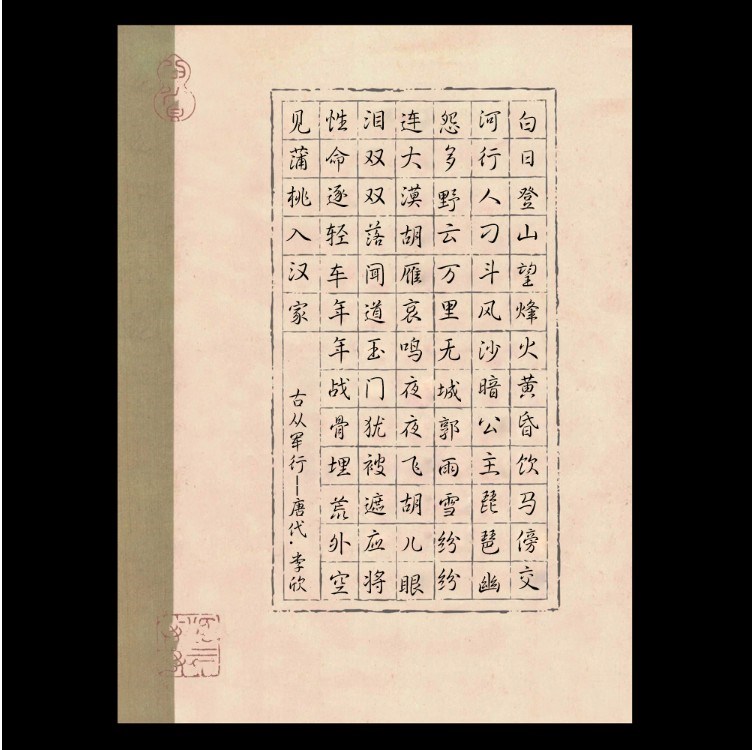 白日登山望烽火黄昏饮马傍交
河行人刁斗风沙暗公主琵琶幽
怨多野云万里无城郭雨雪纷纷
连大漠胡雁哀鸣夜夜飞胡儿眼
泪双双落闻道玉门犹被遮应将
性命逐轻车年年战骨埋荒外空
见蒲桃入汉家
古从军行—唐代·李欣